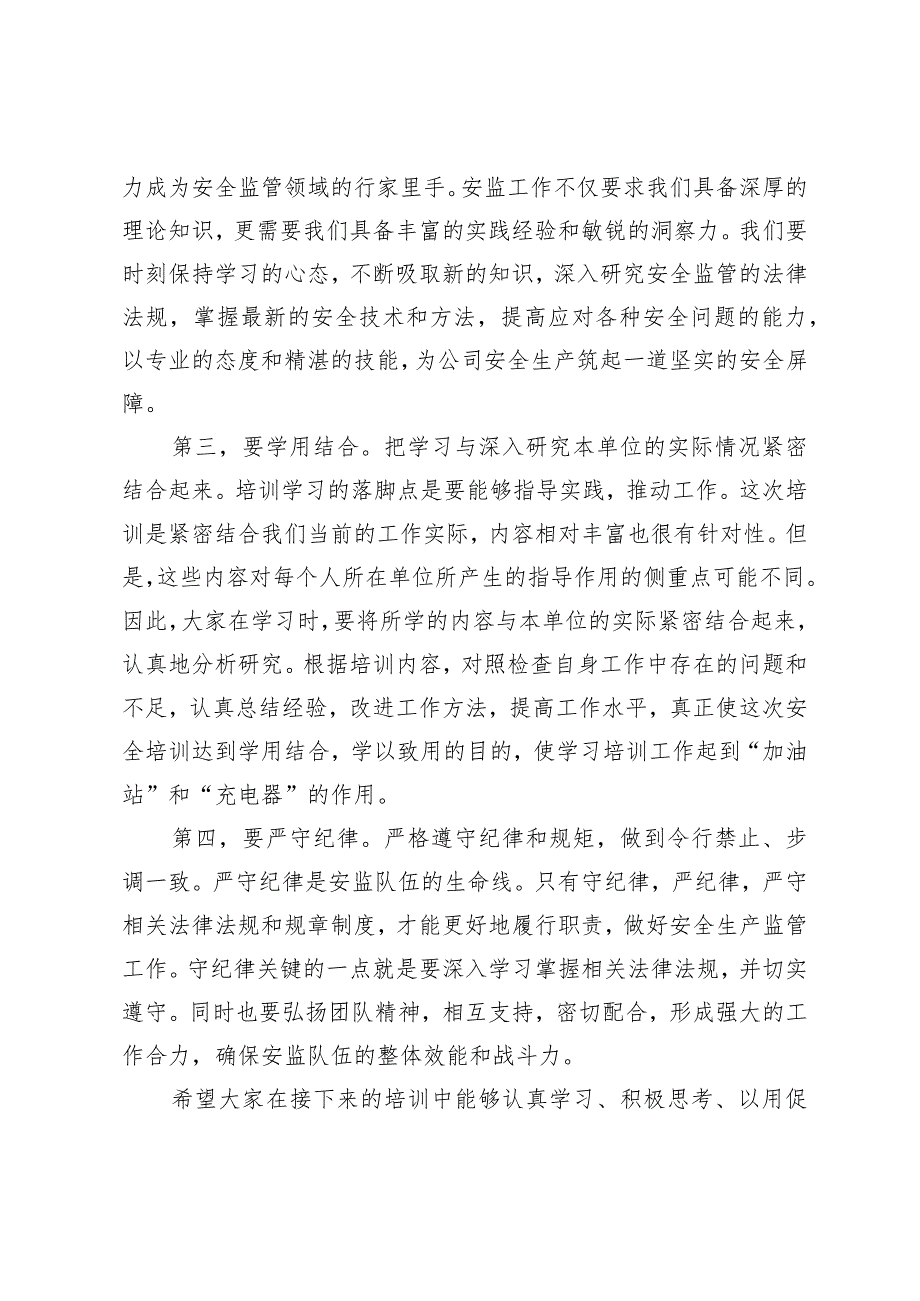 力成为安全监管领域的行家里手。安监工作不仅要求我们具备深厚的
理论知识，更需要我们具备丰富的实践经验和敏锐的洞察力。我们要
时刻保持学习的心态，不断吸取新的知识，深入研究安全监管的法律
法规，掌握最新的安全技术和方法，提高应对各种安全问题的能力，
以专业的态度和精湛的技能，为公司安全生产筑起一道坚实的安全屏
障。
第三，要学用结合。把学习与深入研究本单位的实际情况紧密
结合起来。培训学习的落脚点是要能够指导实践，推动工作。这次培
训是紧密结合我们当前的工作实际，内容相对丰富也很有针对性。但
是，这些内容对每个人所在单位所产生的指导作用的侧重点可能不同。
因此，大家在学习时，要将所学的内容与本单位的实际紧密结合起来，
认真地分析研究。根据培训内容，对照检查自身工作中存在的问题和
不足，认真总结经验，改进工作方法，提高工作水平，真正使这次安
全培训达到学用结合，学以致用的目的，使学习培训工作起到“加油
站”和“充电器”的作用。
第四，要严守纪律。严格遵守纪律和规矩，做到令行禁止、步
调一致。严守纪律是安监队伍的生命线。只有守纪律，严纪律，严守
相关法律法规和规章制度，才能更好地履行职责，做好安全生产监管
工作。守纪律关键的一点就是要深入学习掌握相关法律法规，并切实
遵守。同时也要弘扬团队精神，相互支持，密切配合，形成强大的工
作合力，确保安监队伍的整体效能和战斗力。
希望大家在接下来的培训中能够认真学习、积极思考、以用促